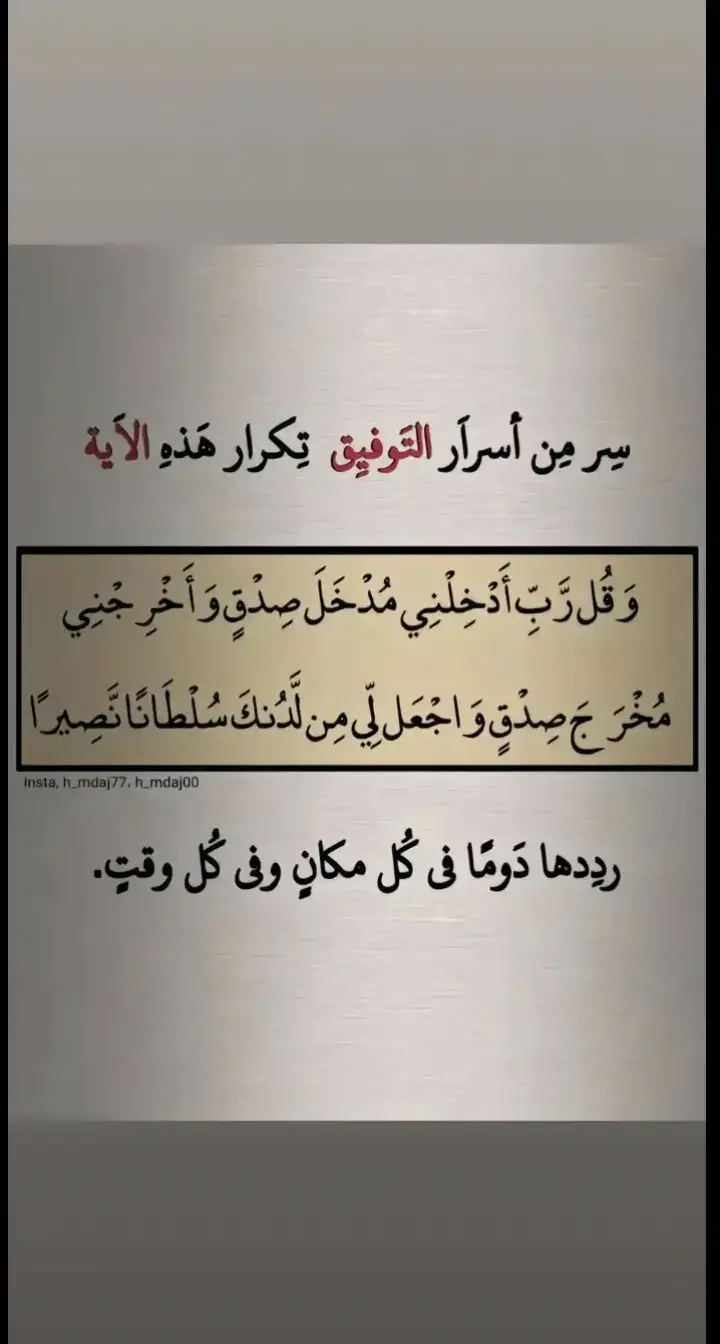 سِر مِن أَسرَار التَوفيِق تِكرار هَذهِ الاَية
وَقُل رَّبِّ أَدْخِلْنِي مُدْخَلَ صِدْقٍ وَأَخْرِجْنِي
مُخْرَجَ صِدْقٍ وَاجْعَل لِّي مِن لَّدُنكَ سُلْطَانًا نَّصِيرًا
Insta, h_mdaj77، h_mdaj00
ردِدها دَومًا فى كُل مكانٍ وفى كُل وقتٍ.